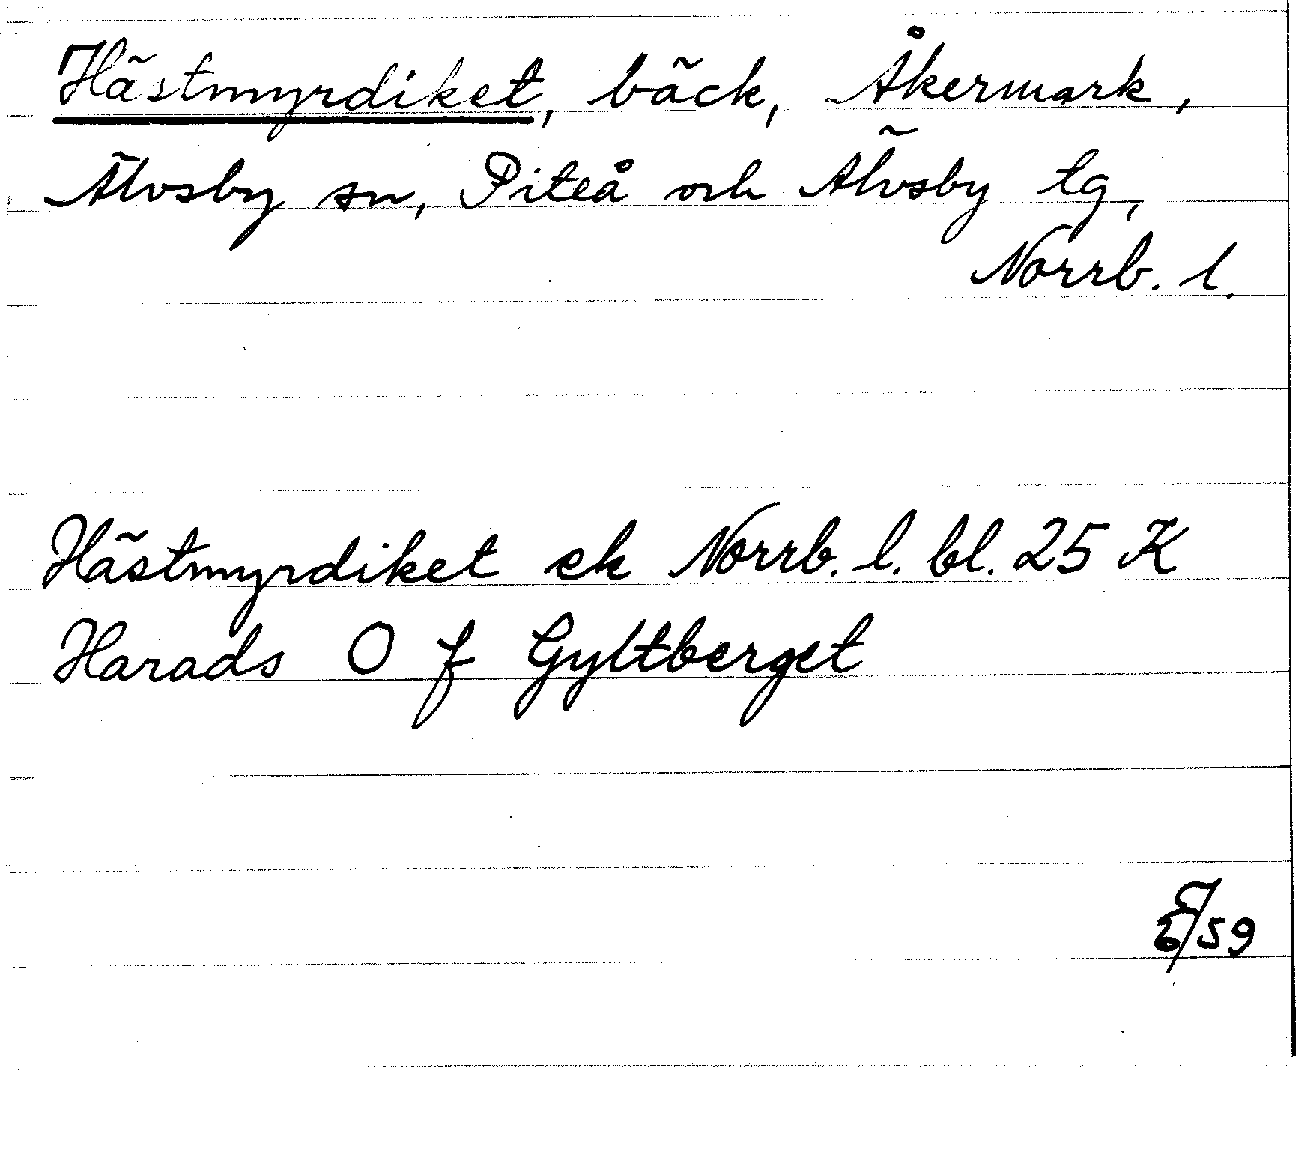 Hästmyrdiket, bäck, Åkermark,
Älvsby sn, Piteå och Älvsby tg,
Norrb. l.
Hästmyrdiket ek Norrb. l. bl. 25 K
Harads O f Gyltberget
/59